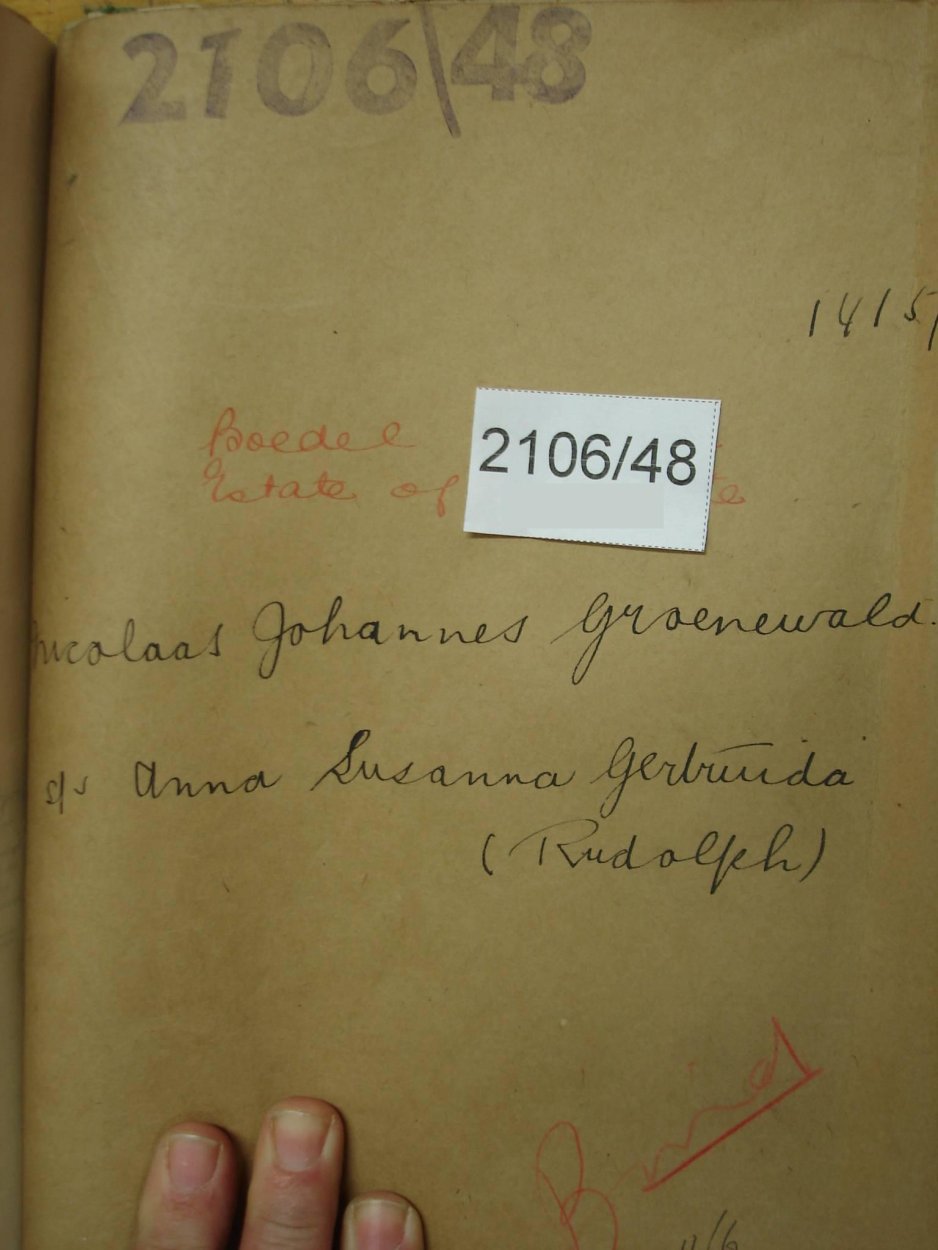 2106\48
1415
Boedel
Estate of
2106/48
Nicolaas Johannes Groenewald.
s/s Anna Susanna Gertruida
(Rudolph)